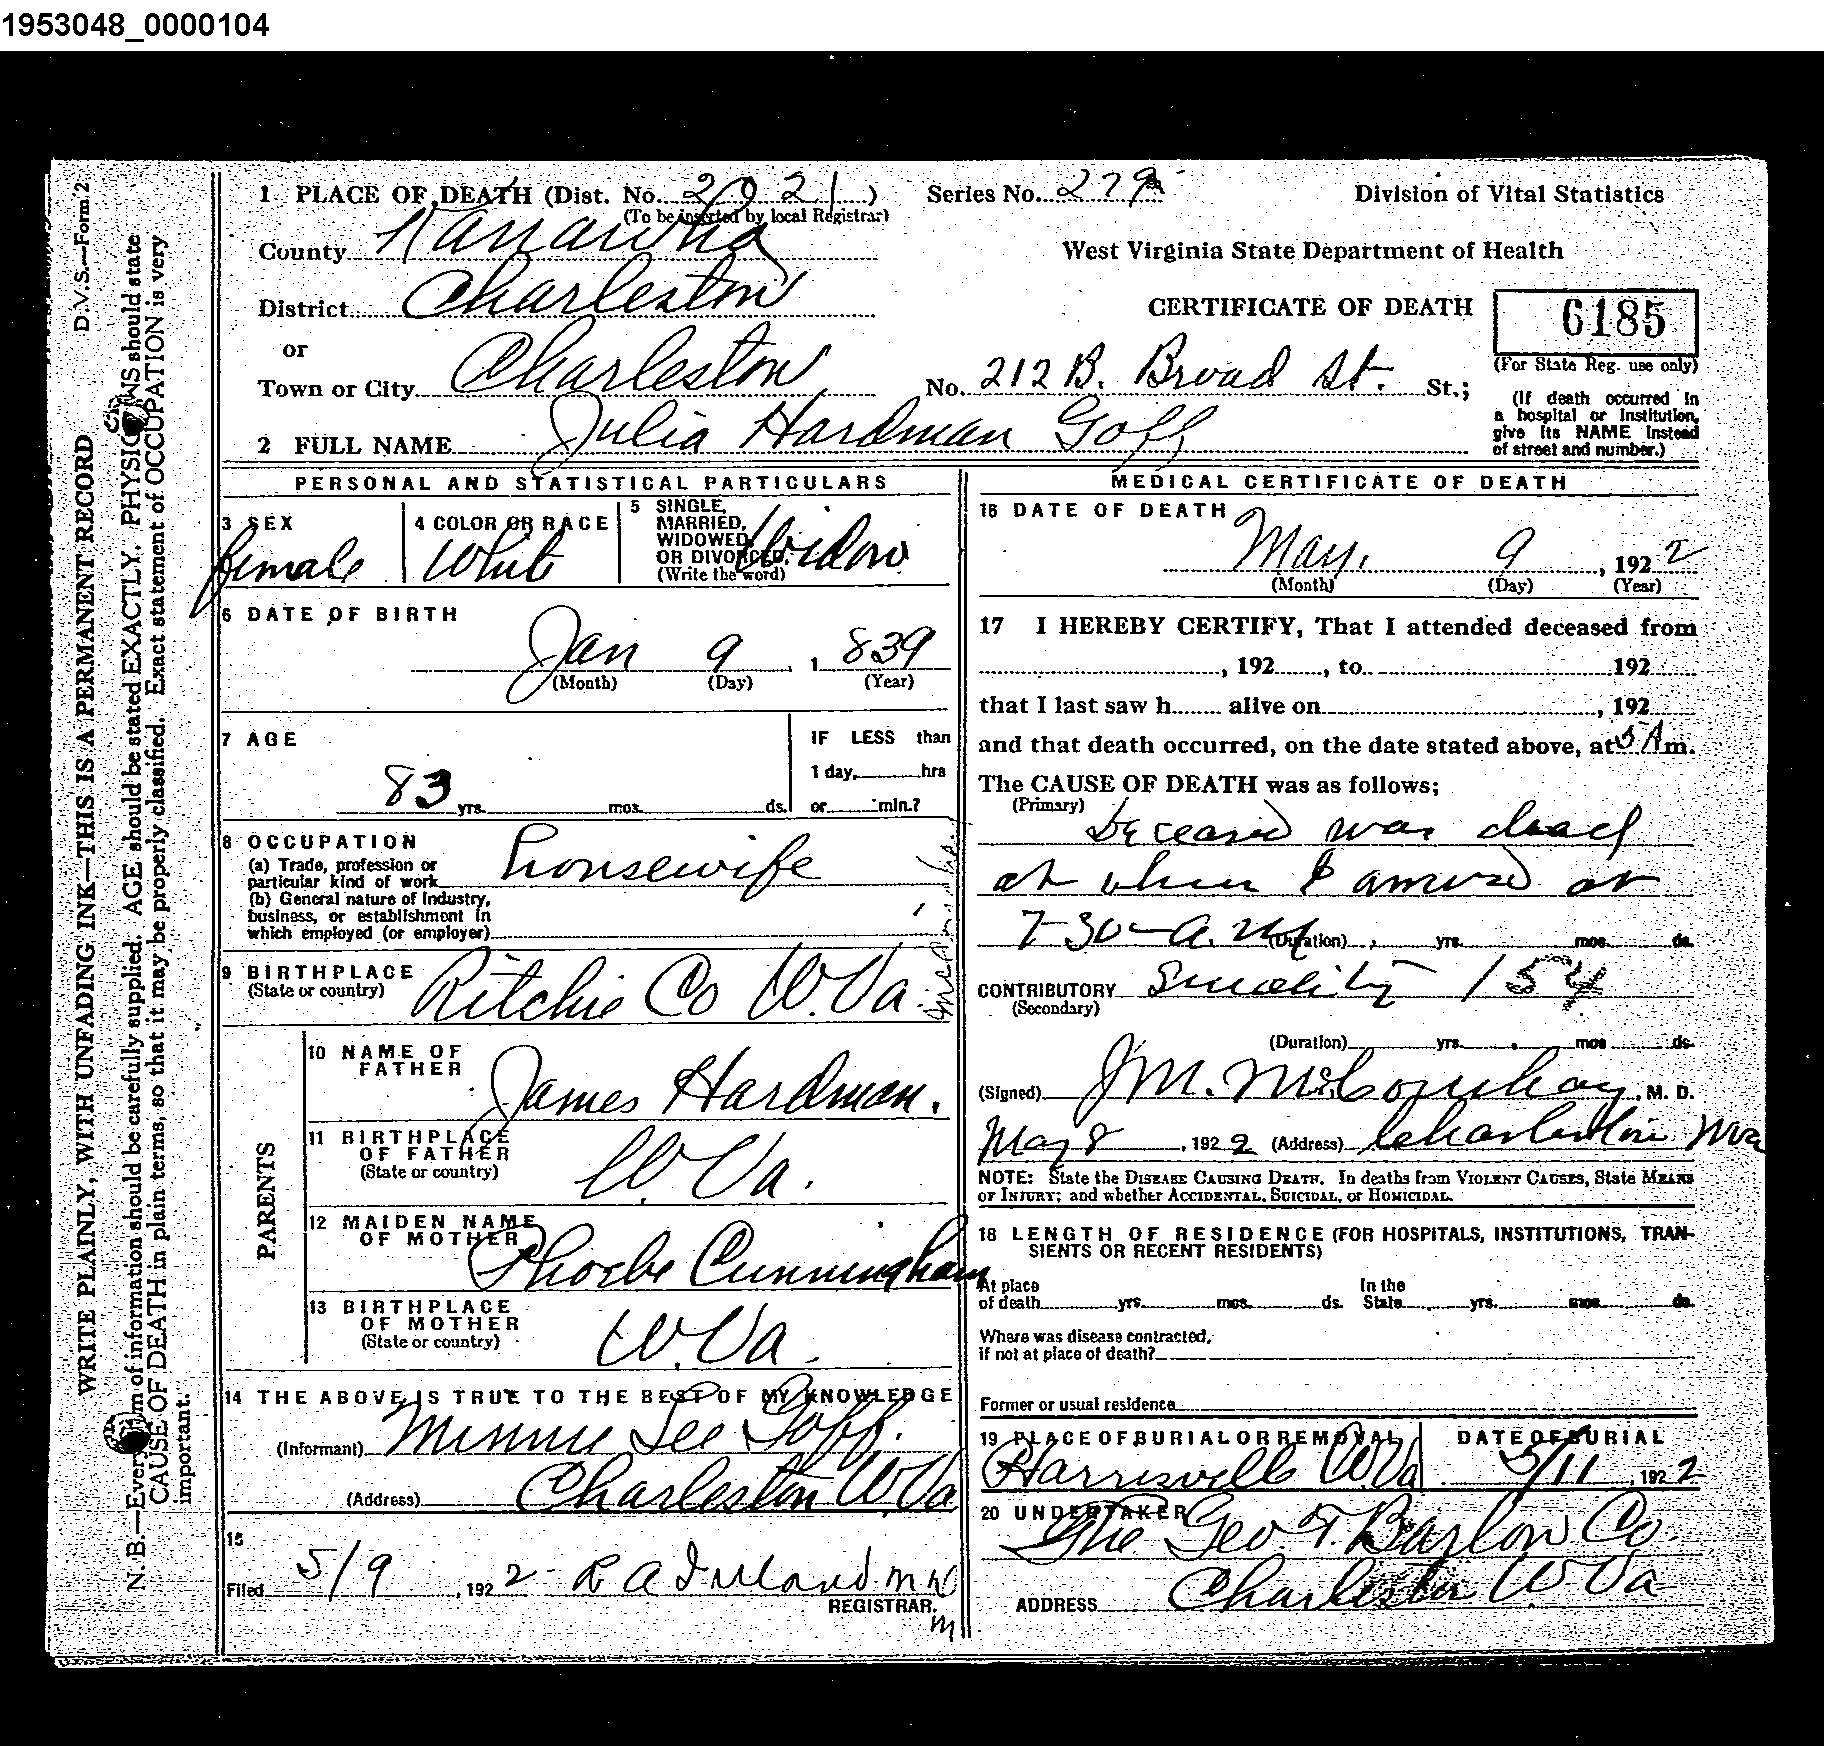 1953048_0000104
D.V.S.—Form 2
WRITE PLAINLY, WITH UNFADING INK—THIS IS A PERMANENT RECORD
N. B.—Every item of information should be carefully supplied. AGE should be stated EXACTLY. PHYSICIANS should state
CAUSE OF DEATH in plain terms, so that it may be properly classified. Exact statement of OCCUPATION is very
important.
1 PLACE OF DEATH (Dist. No. 2021) Series No. 279 Division of Vital Statistics
(To be inserted by local Registrar)
County Kanawha West Virginia State Department of Health
District Charleston CERTIFICATE OF DEATH 6185
or (For State Reg. use only)
Town or City Charleston No. 212 B. Broad St. St.;
(If death occurred in
a hospital or Institution,
give its NAME instead
of street and number.)
2 FULL NAME Julia Hardman Goff
PERSONAL AND STATISTICAL PARTICULARS
3 SEX female
4 COLOR OR RACE White
5 SINGLE,
MARRIED,
WIDOWED,
OR DIVORCED.
(Write the word) Widow
6 DATE OF BIRTH
Jan 9, 1 839
(Month) (Day) (Year)
7 AGE
83 yrs. mos. ds.
IF LESS than
1 day, hrs
or min.?
8 OCCUPATION
(a) Trade, profession or
particular kind of work housewife
(b) General nature of Industry,
business, or establishment in
which employed (or employer)
9 BIRTHPLACE
(State or country) Ritchie Co W.Va.
PARENTS
10 NAME OF
FATHER James Hardman.
11 BIRTHPLACE
OF FATHER
(State or country) W.Va.
12 MAIDEN NAME
OF MOTHER Phoebe Cunningham
13 BIRTHPLACE
OF MOTHER
(State or country) W.Va.
14 THE ABOVE IS TRUE TO THE BEST OF MY KNOWLEDGE
(Informant) Minnie Lee Goff.
(Address) Charleston W.Va
15
Filed 5/9, 192 2 R A Ireland
REGISTRAR.
MEDICAL CERTIFICATE OF DEATH
16 DATE OF DEATH
May. 9, 192 2
(Month) (Day) (Year)
17 I HEREBY CERTIFY, That I attended deceased from
, 192 , to 192
that I last saw h alive on , 192
and that death occurred, on the date stated above, at 5 A m.
The CAUSE OF DEATH was as follows;
(Primary) Deceased was dead
at when I arrived at
7-30- a.m. (Duration) yrs. mos. ds.
CONTRIBUTORY Senility 154
(Secondary)
(Duration) yrs. mos ds.
(Signed) J M. McConihay, M. D.
May 8, 192 2 (Address) Charleston Wva
NOTE: State the DISEASE CAUSING DEATH. In deaths from VIOLENT CAUSES, State MEANS
OF INJURY; and whether ACCIDENTAL, SUICIDAL, or HOMICIDAL.
18 LENGTH OF RESIDENCE (FOR HOSPITALS, INSTITUTIONS, TRAN-
SIENTS OR RECENT RESIDENTS)
At place In the
of death yrs. mos. ds. State yrs. mos. ds.
Where was disease contracted,
if not at place of death?
Former or usual residence
19 PLACE OF BURIAL OR REMOVAL DATE OF BURIAL
Harrisville W.Va 5/11, 192 2
20 UNDERTAKER
The Geo. T. Barlow Co.
ADDRESS Charleston W.Va